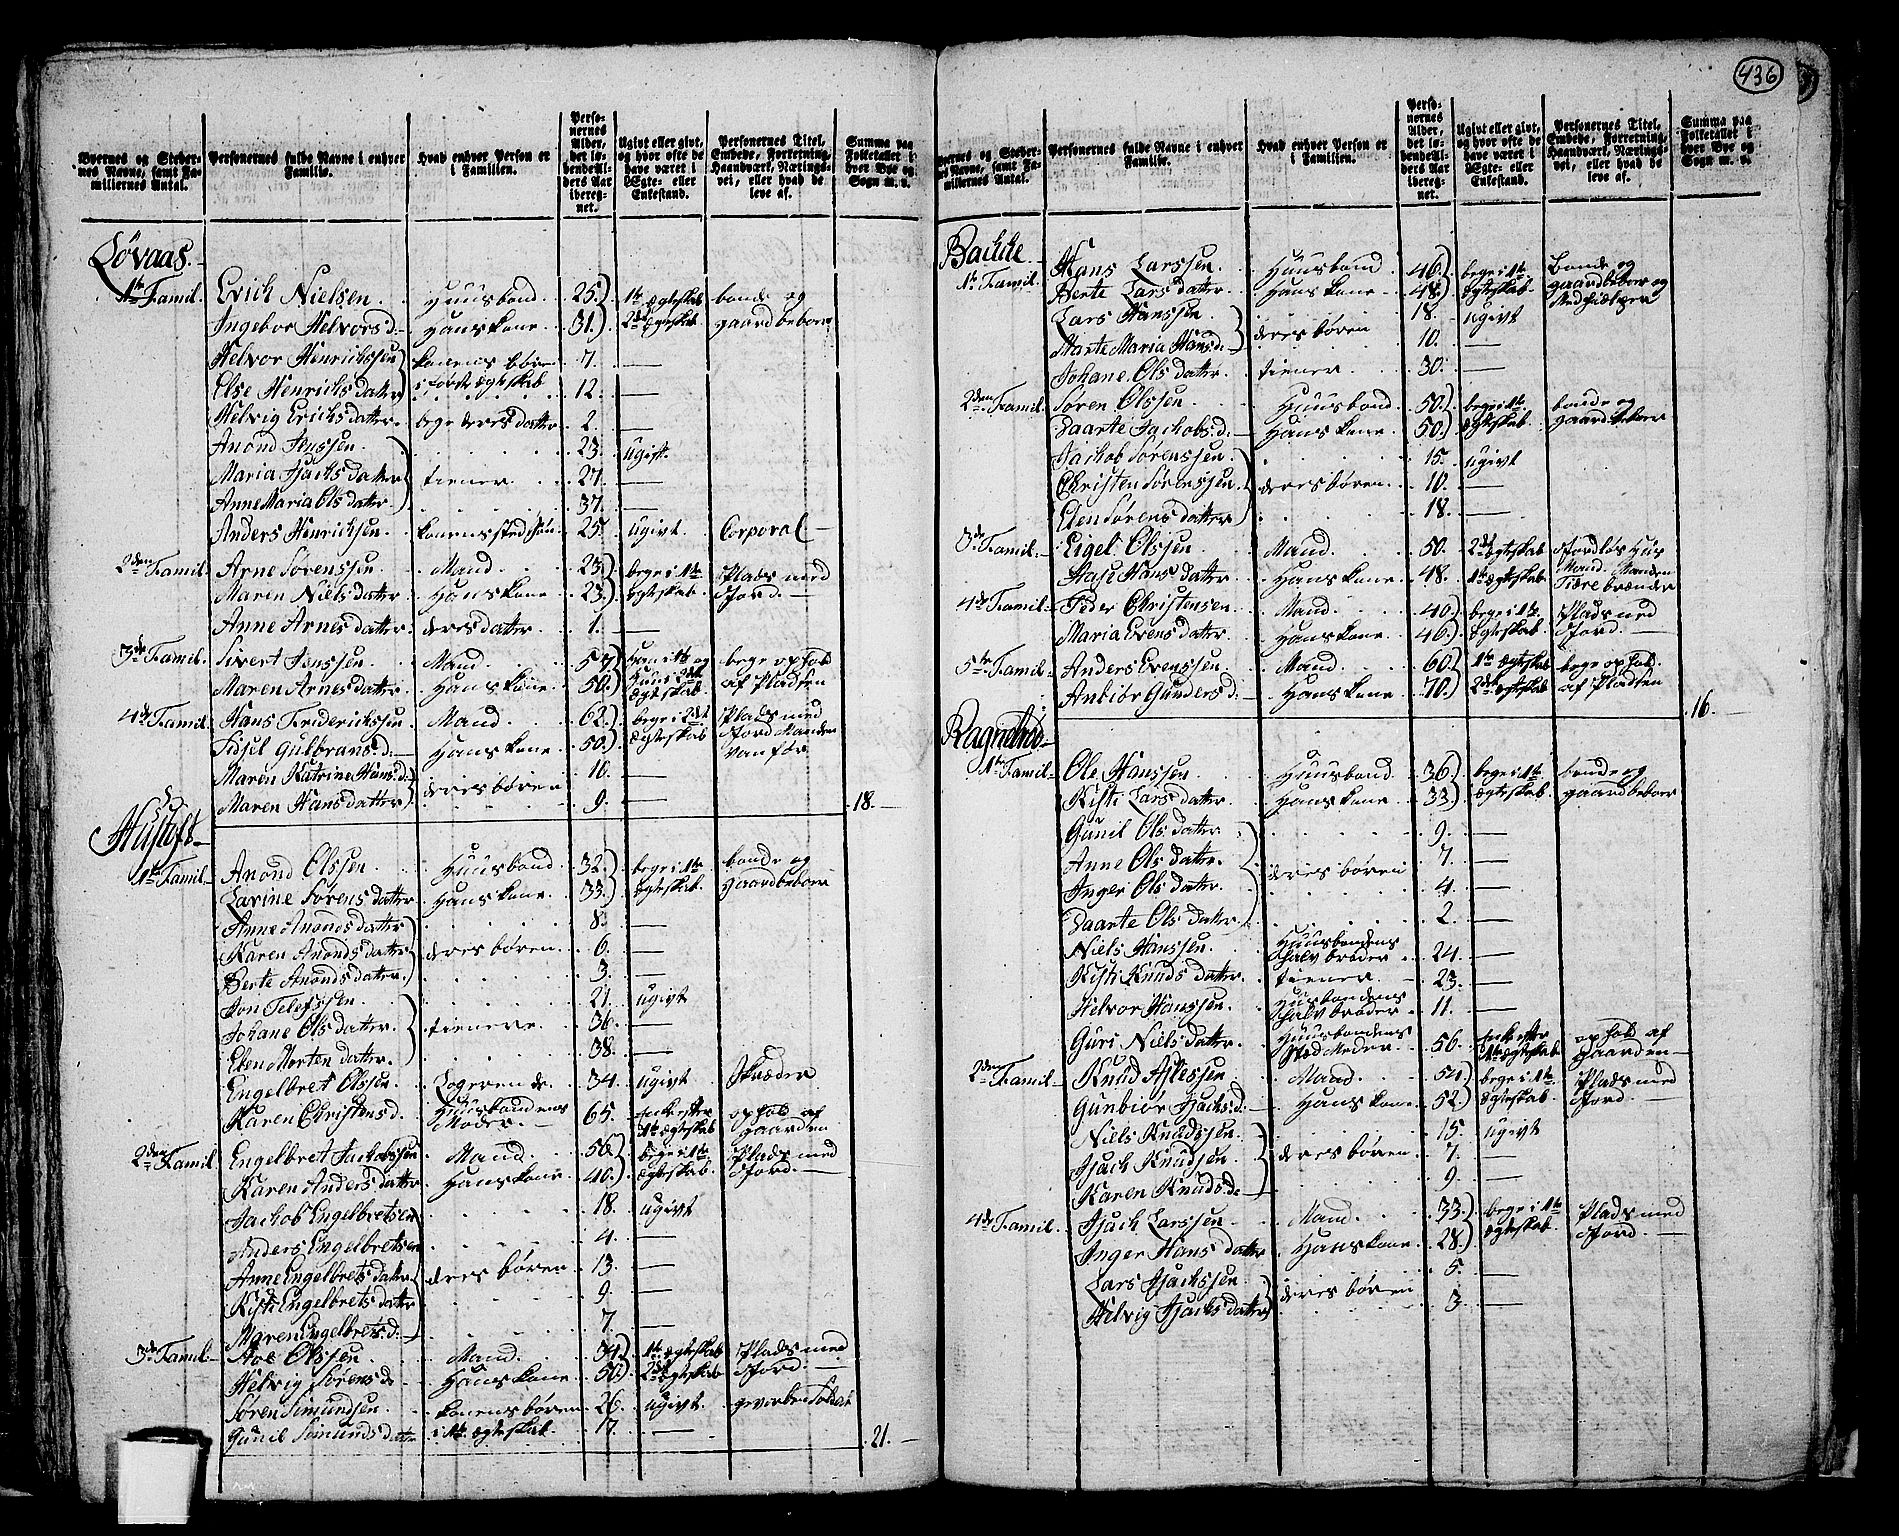 436
Byernes og Stedernes Navne, samt Familiernes Antal.
Personernes fulde Navne i enhver Familie.
Hvad enhver Person er i Familien.
Personernes Alder, det løbendeAlders Aar iberegnet.
Ugivt eller givt, og hvor ofte de have været i Ægte- eller Enkestand.
Personernes Titel, Embede, Forretning, Haandværk, Næringsvei, eller hvad de leve af.
Summa paa Folketallet i hver Bye og Sogn m. v.
Løvaas.
1te Famil. Erich Nielsen. Huusbond. 25.) 1te Ægteskab bonde og
Ingebor Helvors d. Hans kone 31.) 2det Ægteskab gaardbeboer
Helvor Henrichssen konens børn 7. —
Else Henrichs datter i første ægteskab 12. —
Helvig Erichs datter bege deres datter 2. —
Anond Jenssen. 23. ugift.
Maria Isachs datter tiener 27. —
Anne Maria Ols datter 37. —
Anders Henrichsen konens stedsøn 25. ugivt Corporal —
2den Famil. Arne Sørenssen Mand. 23.) bege i 1te Plads med
Maren Niels datter Hans kone 23.) Ægteskab. Jord. —
Anne Arnes datter. deres datter. 1. —
3de Famil. Sivert Jenssen. Mand. 57.) han i 1te og bege ophold
Maren Arnes datter. Hans kone. 50.) Huus i 2det ægteskab af Pladsen
4de Famil. Hans Friderichssen Mand. 62.) bege i 2det Plads med
Sidsel Gulbrans d. — Hans kone 50.) Ægteskab Jord Manden vanfør
Maren Katrine Hans d. deres børen 10. —
Maren Hans datter 9. —
18. —
Hustoft —
1te Famil. Anond Olssen Huusbond. 32.) bege i 1te bonde og
Larine Sørens datter Hans kone. 33.) Ægteskab. gaardbeboer
Anne Anonds datter 8. —
Karen Anonds datter deres børen 6. —
Berte Anonds datter. 3. —
Jon Telefssen 21. ugivt
Johane Ols datter. tienere. 36. —
Elen Morten datter. 38. —
Engelbret Olssen. Logerende. 34. ugivt Skræder
Karen Christens d. Huusbondens Moder. — 65. Enke efter 1te ægteskab ophold af gaarden
2den Famil. Engelbret Jachobssen Mand. 56.) bege i 1te Plads med
Karen Anders datter Hans kone 40.) ægteskab. Jord. —
Jachob Engelbretsen 18. ugivt
Anders Engelbretsen 4. —
Anne Engelbrets datter deres børen 13. —
Kisti Engelbrets datter 9. —
Maren Engelbrets d. — 7. —
3de Famil. Ave Olssen. Mand. 34.) 1te ægteskab Plads med
Helvig Sørens d. Hans kone 50.) 2det ægteskab Jord. —
Søren Simundsen. konens børen 26. ugivt. gevorben Soldat
Gunil Somunds datter i 1te ægteskab. 17. —
21. —
Byernes og Stedernes Navne, samt Familiernes Antal.
Personernes fulde Navne i enhver Familie.
Hvad enhver Person er i Familien.
Personernes Alder, det løbendeAlders Aar iberegnet.
Ugivt eller givt, og hvor ofte de have været i Ægte- eller Enkestand.
Personernes Titel, Embede, Forretning, Haandværk, Næringsvei, eller hvad de leve af.
Summa paa Folketallet i hver Bye og Sogn m. v.
Bachhe —
1te Famil. Hans Larssen. Huusbond 46.) bege i 1te Bonde og
Berte Lars datter. Hans kone 48.) Ægteskab. gaardbeboer og Medhiælper
Lars Hanssen 18. ugivt
Marte Maria Hans d. deres børen 10. —
Johane Ols datter tiener. 30. —
2den Famil. Søren Olssen. Huusbond. 50.) bege i 1te bonde og
Daarte Jachobs d. — Hans kone 50.) ægteskab gaardbeboer
Jachob Sørenssen 15. ugivt
Christen Sørenssen. deres børen. 10. —
Elen Sørens datter 18. —
3de Famil. Eigel Olssen Mand. 50. 2det ægteskab Jordløs Huus
Aase Hans datter Hans kone 48. 1te ægteskab Mand. Manden Tiære brænder
4de Famil. Peder Christensen Mand. 40.) bege i 1te Plads med
Maria Evens datter Hans kone 46.) Ægteskab Jord. —
5te Famil. Anders Evenssen. Mand. 60.) 1te ægteskab bege ophold
Anbiør Gunders d. — Hans kone. 70.) 2det ægteskab af Pladsen
16. —
Ragnerød —
1te Famil. Ole Hanssen. Huusbond. 36.) bege i 1te bonde og
Kisti Lars datter. Hans kone 33.) Ægteskab gaardbeboer
Gunil Ols datter 9. —
Anne Ols datter. deres børen 7. —
Inger Ols datter. 4. —
Daarte Ols datter 2. —
Niels Hanssen. Huusbondens halv broder 24. —
Kisti Knuds datter. tiener 23. —
Helvor Hanssen. Husbondens halv broder 11. —
Guri Niels datter. Huusbondens Sted Moder 56. Enke efter 1te ægteskab ophold af gaarden —
2den Famil. Knud Aslessen Mand. 54.) bege i 1te Plads med
Gunbiør Isachs d. — Hans kone. 52.) ægteskab. Jord. —
Niels Knudssen. 15. ugivt
Isach Knudsen. deres børen. 7. —
Karen Knuds d. — 9. —
4de Famil. Isach Larssen Mand. 33.) bege i 1te Plads med
Inger Hans datter Hans kone. 28.) ægteskab. Jord. —
Lars Isachssen 5. —
Helvig Isachs datter deres børen 3. —